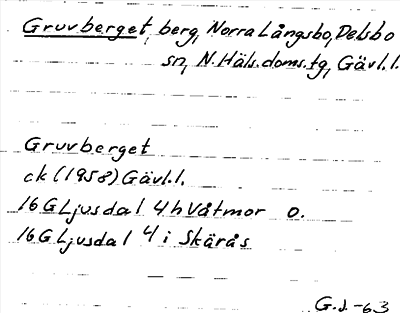 Gruvberget, berg, Norra Långsbo, Delsbo
sn, N. Häls. doms. tg, Gävl. l.
Gruvberget
ek (1958) Gävl. l.
16 G Ljusdal 4 h Våtmor o.
16 G Ljusdal 4 i Skärås
G. J. -63